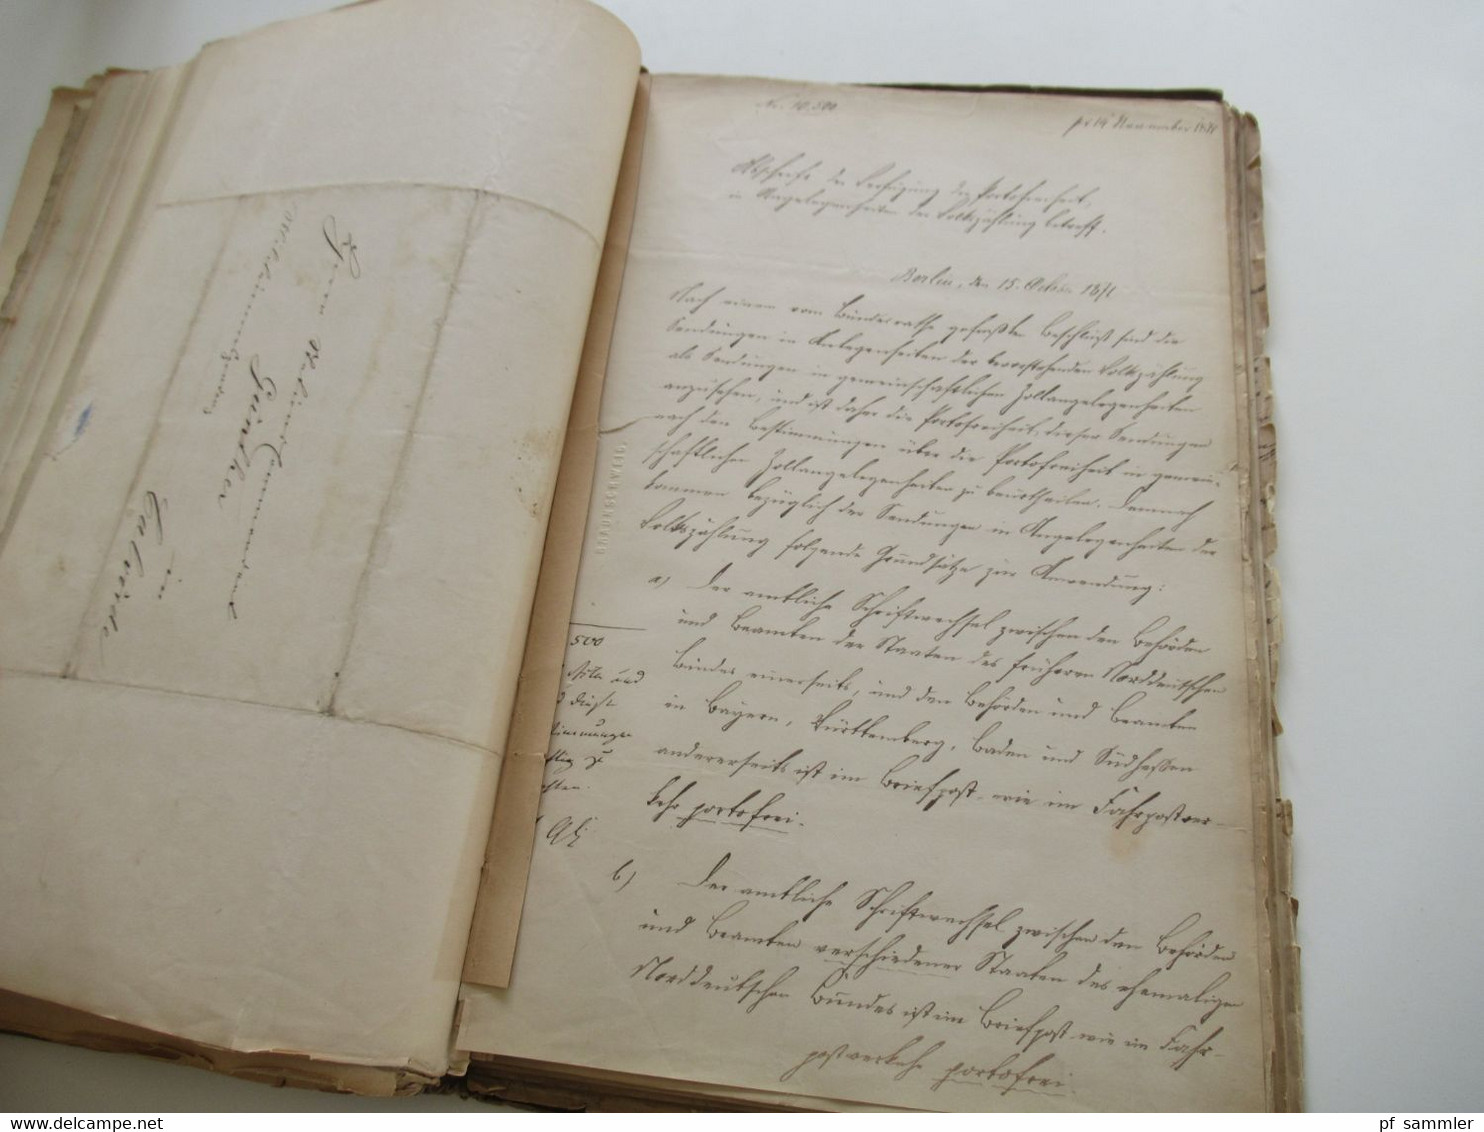 Herrn Kreis Commandeur
Günther
in
Calvörde
BRAUNSCHWEIG
500
und
No. 10.500
pr 14 November 1871
Abschrift der Verfügung die Portofreiheit,
in Angelegenheiten der Volkszählung betreff.
Berlin, den 15. October 1871
Nach einem vom Bundesrathe gefaßten Beschluß sind die
Sendungen in Angelegenheiten der bevorstehenden Volkszählung
als Sendungen in gemeinschaftlichen Zollangelegenheiten
anzusehen, und ist daher die Portofreiheit dieser Sendungen
nach den Bestimmungen über die Portofreiheit in gemein-
schaftlichen Zollangelegenheiten zu beurtheilen. Demnach
kommen bezüglich der Sendungen in Angelegenheiten der
Volkszählung folgende Grundsätze zur Anwendung:
a) Der amtliche Schriftwechsel zwischen den Behörden
und Beamten der Staaten des früheren Norddeutschen
Bundes einerseits, und den Behörden und Beamten
in Bayern, Württemberg, Baden und Südhessen
andererseits ist im Briefpost- wie im Fahrpostver-
kehr portofrei.
b) Der amtliche Schriftwechsel zwischen den Behörden
und Beamten verschiedener Staaten des ehemaligen
Norddeutschen Bundes ist im Briefpost- wie im Fahr-
postverkehr portofrei
www.delcampe.net
pf_sammler